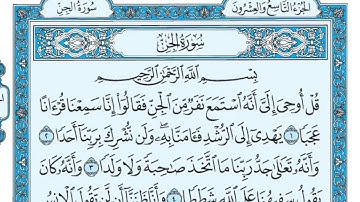 سُورَةُ الجِنّ
الجُزْءُ التَّاسِعُ وَالعِشْرُونَ
سُورَةُ الجِنِّ
بِسْمِ اللَّهِ الرَّحْمَٰنِ الرَّحِيمِ
قُلْ أُوحِيَ إِلَيَّ أَنَّهُ اسْتَمَعَ نَفَرٌ مِّنَ الْجِنِّ فَقَالُوا إِنَّا سَمِعْنَا قُرْءَانًا
عَجَبًا ١ يَهْدِي إِلَى الرُّشْدِ فَـَٔامَنَّا بِهِ وَلَن نُّشْرِكَ بِرَبِّنَا أَحَدًا ٢
وَأَنَّهُ تَعَٰلَىٰ جَدُّ رَبِّنَا مَا اتَّخَذَ صَٰحِبَةً وَلَا وَلَدًا ٣ وَأَنَّهُ كَانَ
يَقُولُ سَفِيهُنَا عَلَى اللَّهِ شَطَطًا ٤ وَأَنَّا ظَنَنَّا أَن لَّن تَقُولَ الْإِنسُ